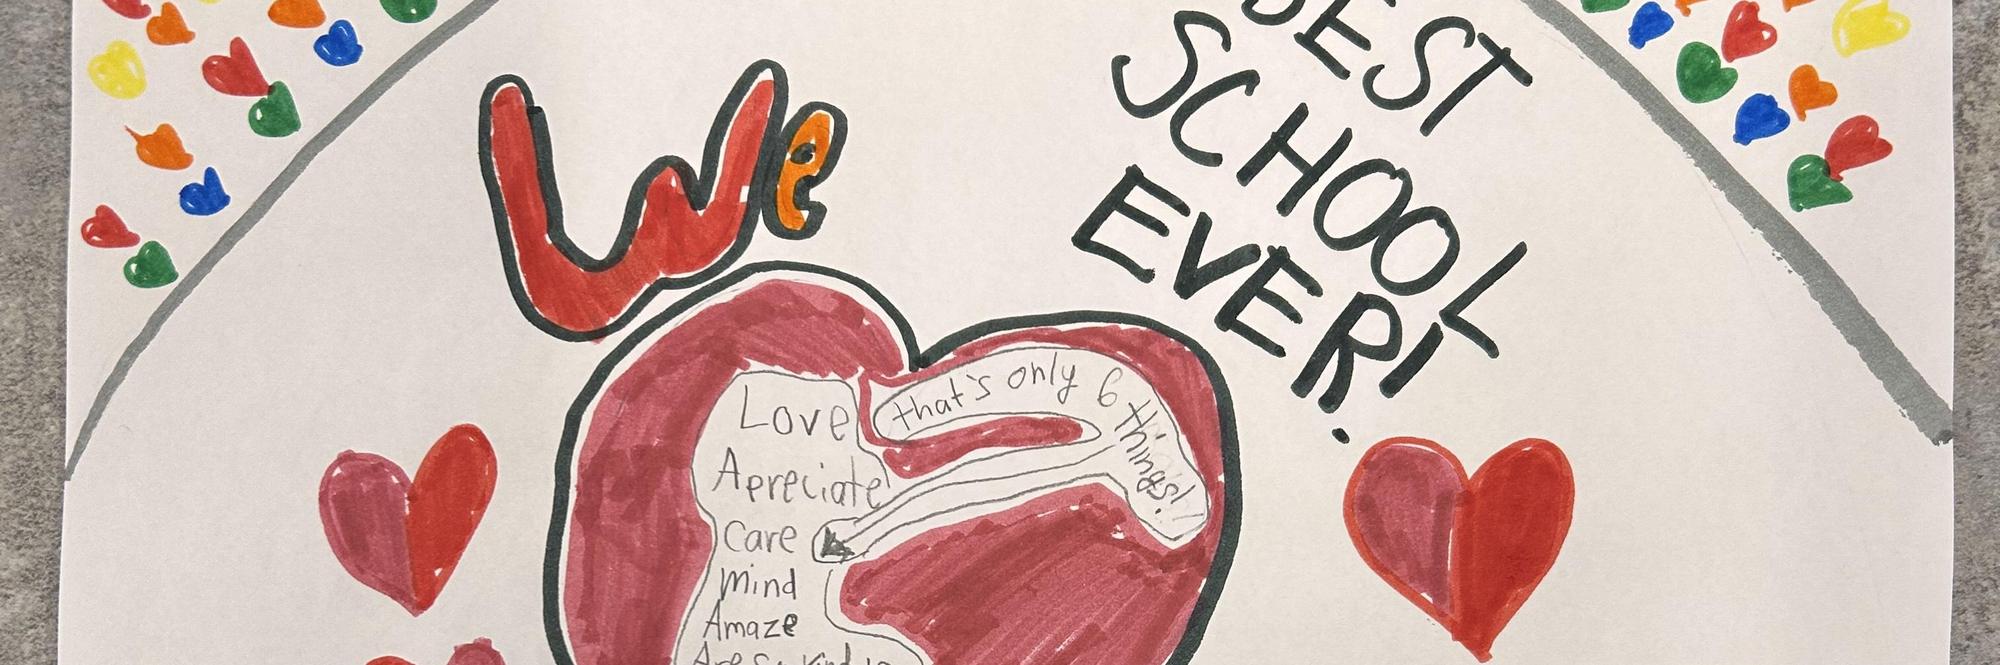 We
BEST
SCHOOL
EVER!
that's only 6 things!
Love
Apreciate
Care
mind
Amaze